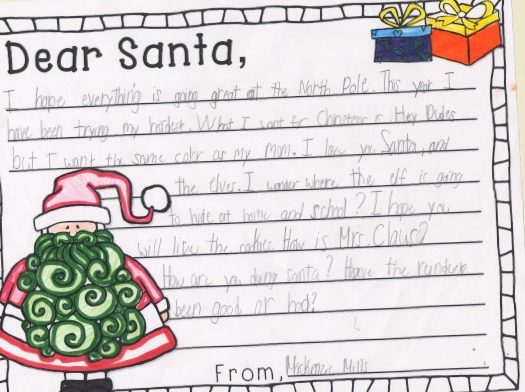 Dear Santa,
I hope everything is going great at the North Pole. This year I
have been trying my hardest. What I want for Christmas is Hey Dudes
but I want the same color as my mom. I love you Santa, and
the elves. I wonder where the elf is going
to hide at home and school? I hope you
will like the cookies. How is Mrs. Claus?
How are you doing santa? Have the reindeers
been good or bad?
From, Mackenzie Mills